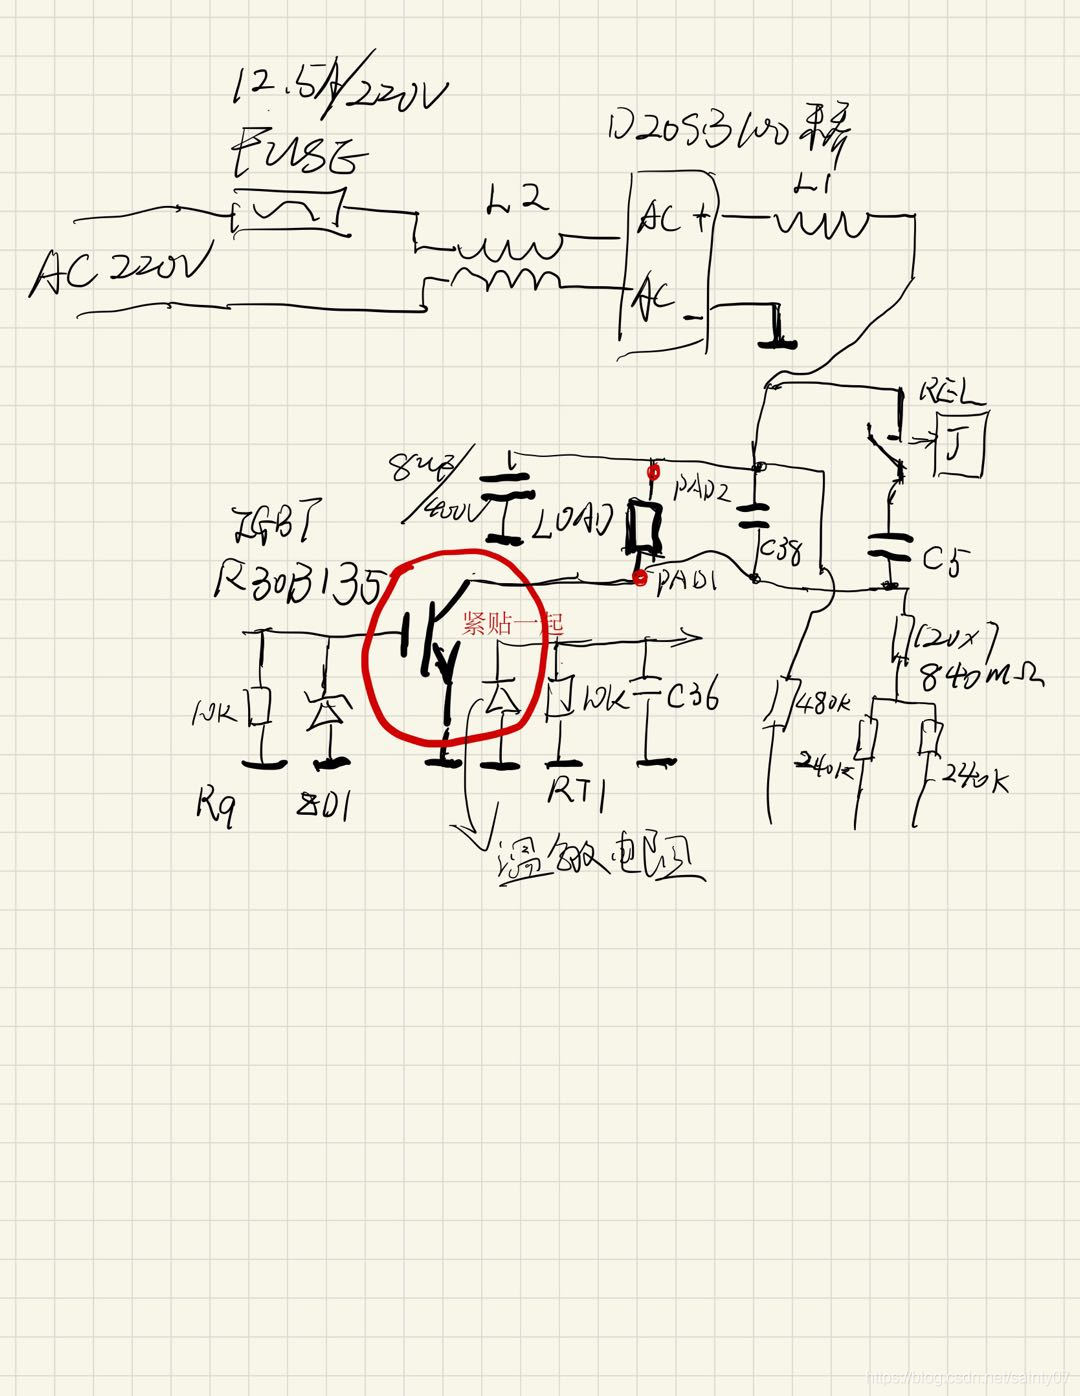 12.5A/220V
FUSE
D20S3100
L1
L2
AC +
AC 220V
AC -
REL
J
8uF/
/400V
LOAD
PAD2
C38
C5
IGBT
R30B135
PAD1
紧贴一起
120x7
840mΩ
10K
10K
C36
480K
240K
240K
R9
ZD1
RT1
温敏电阻
https://blog.csdn.net/sainty07